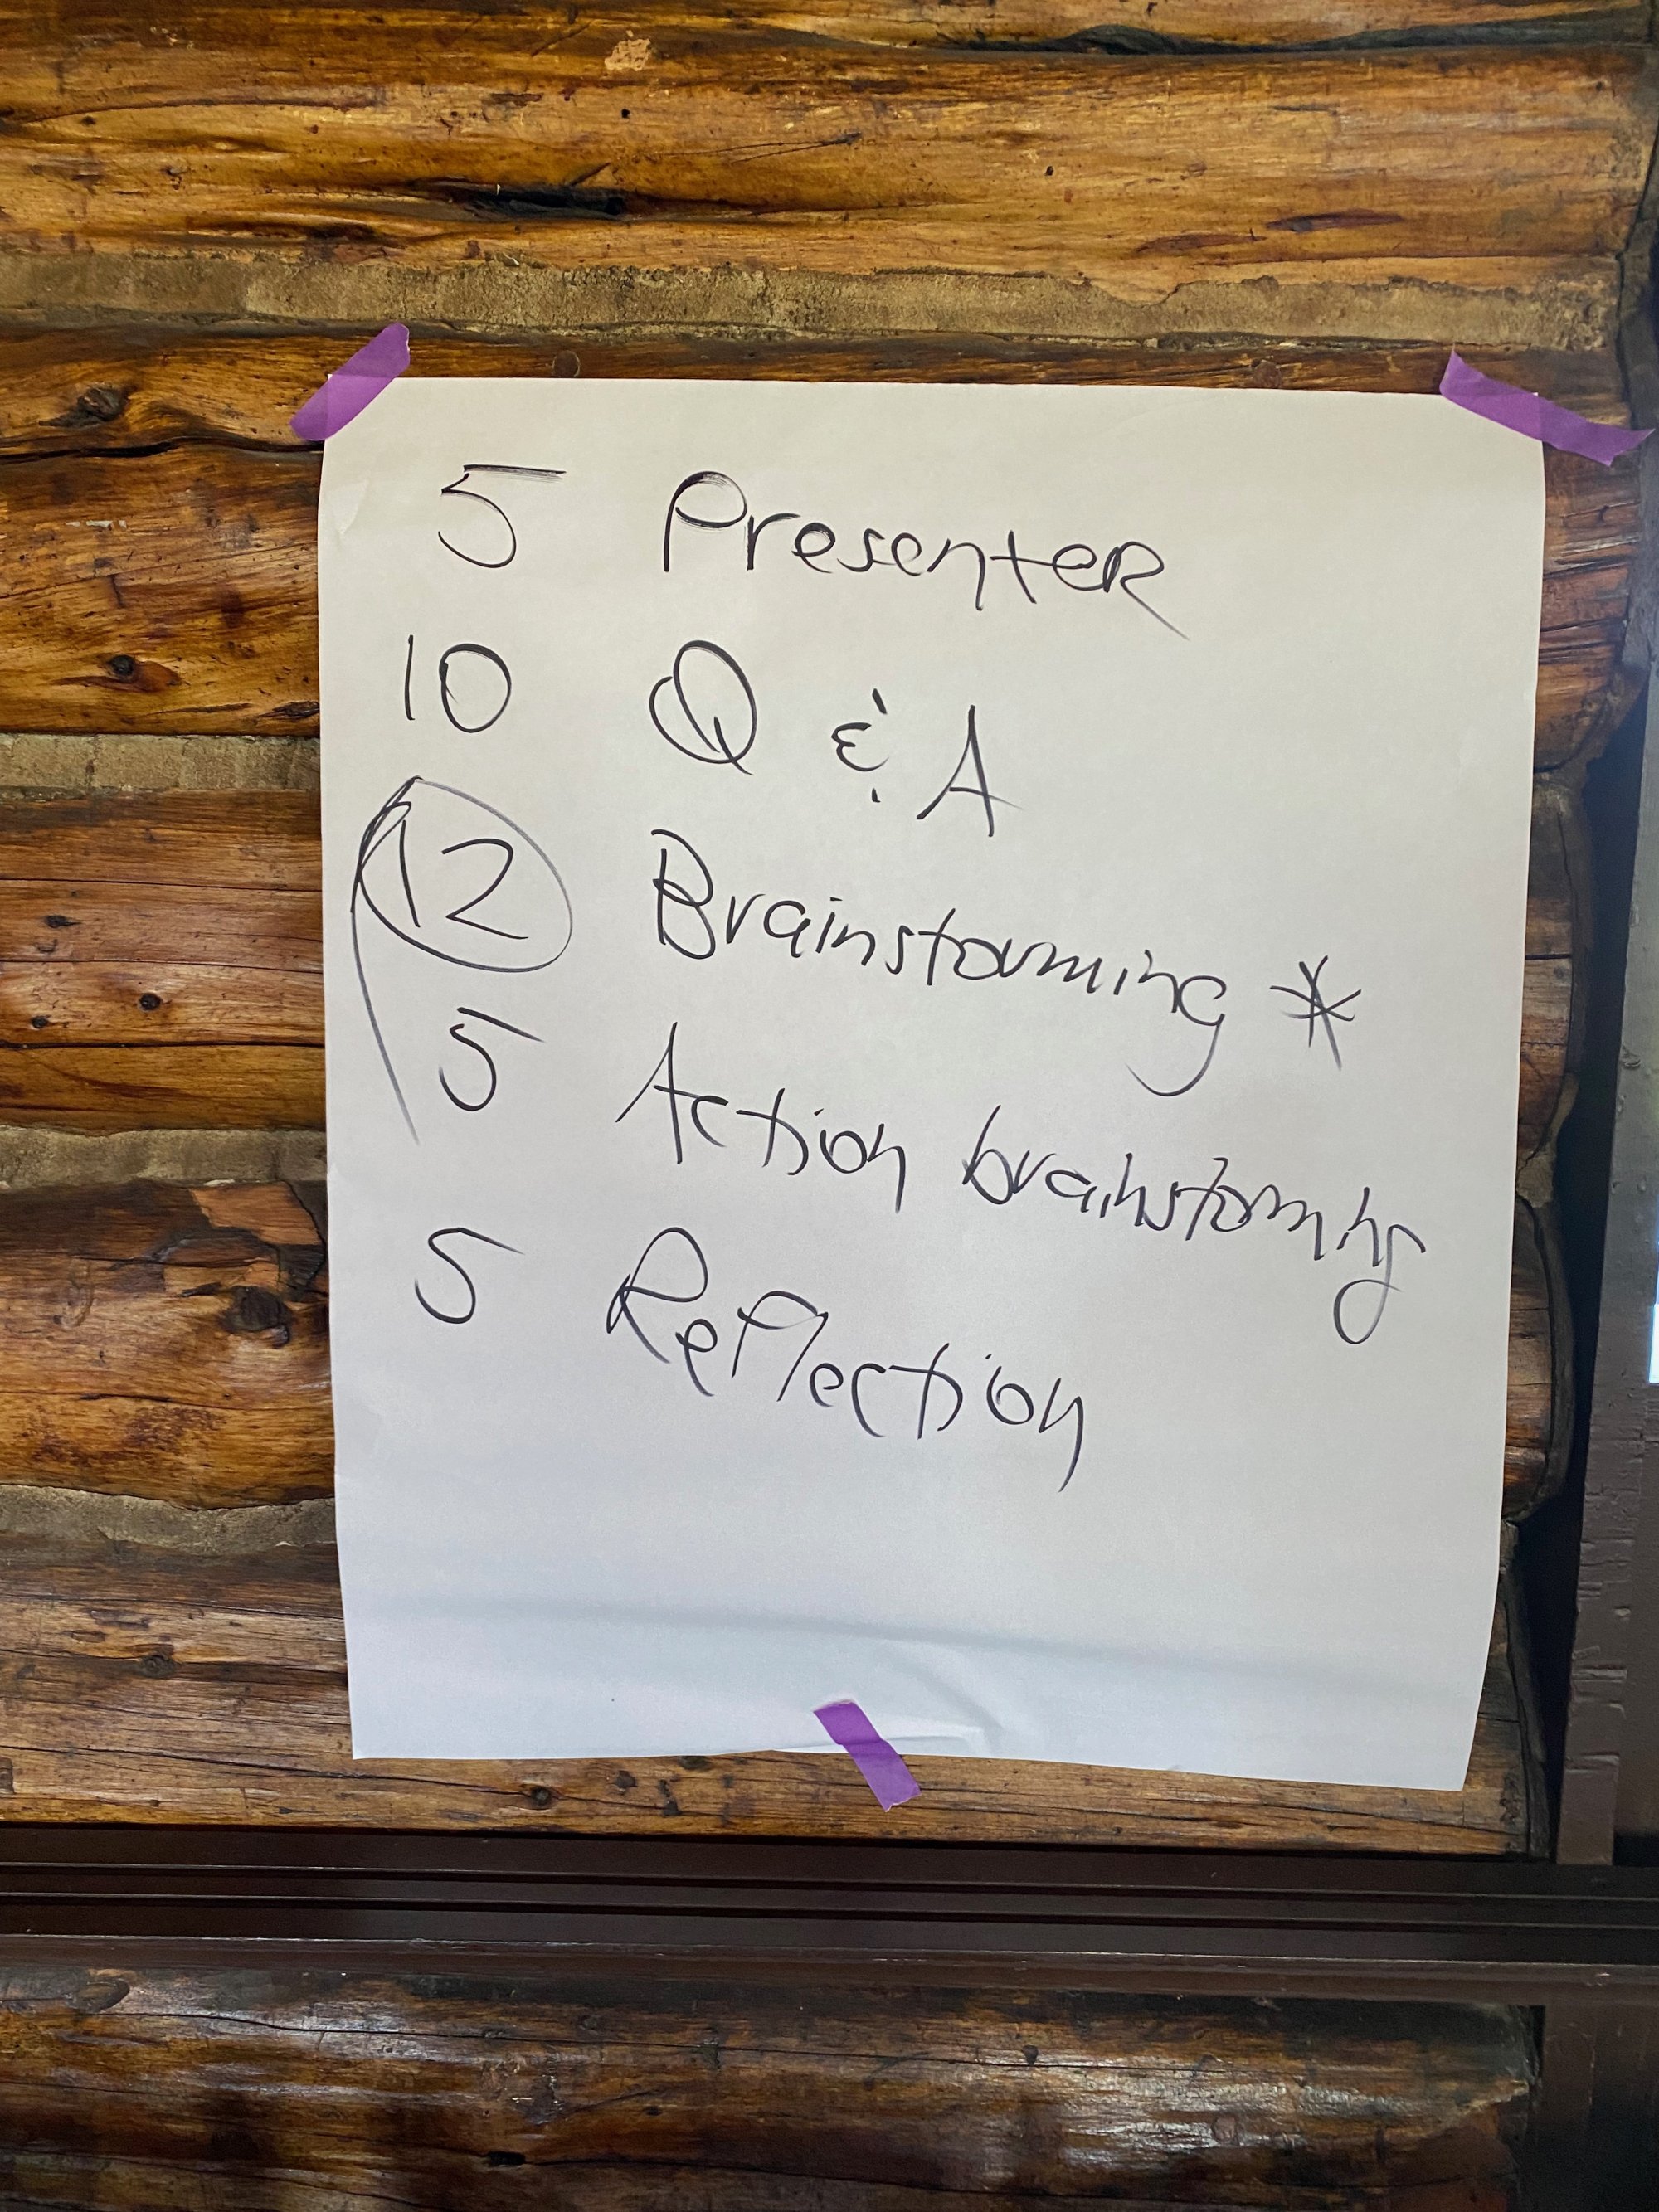 5 Presenter
10 Q & A
12 Brainstorming *
5 Action brainstorming
5 Reflection